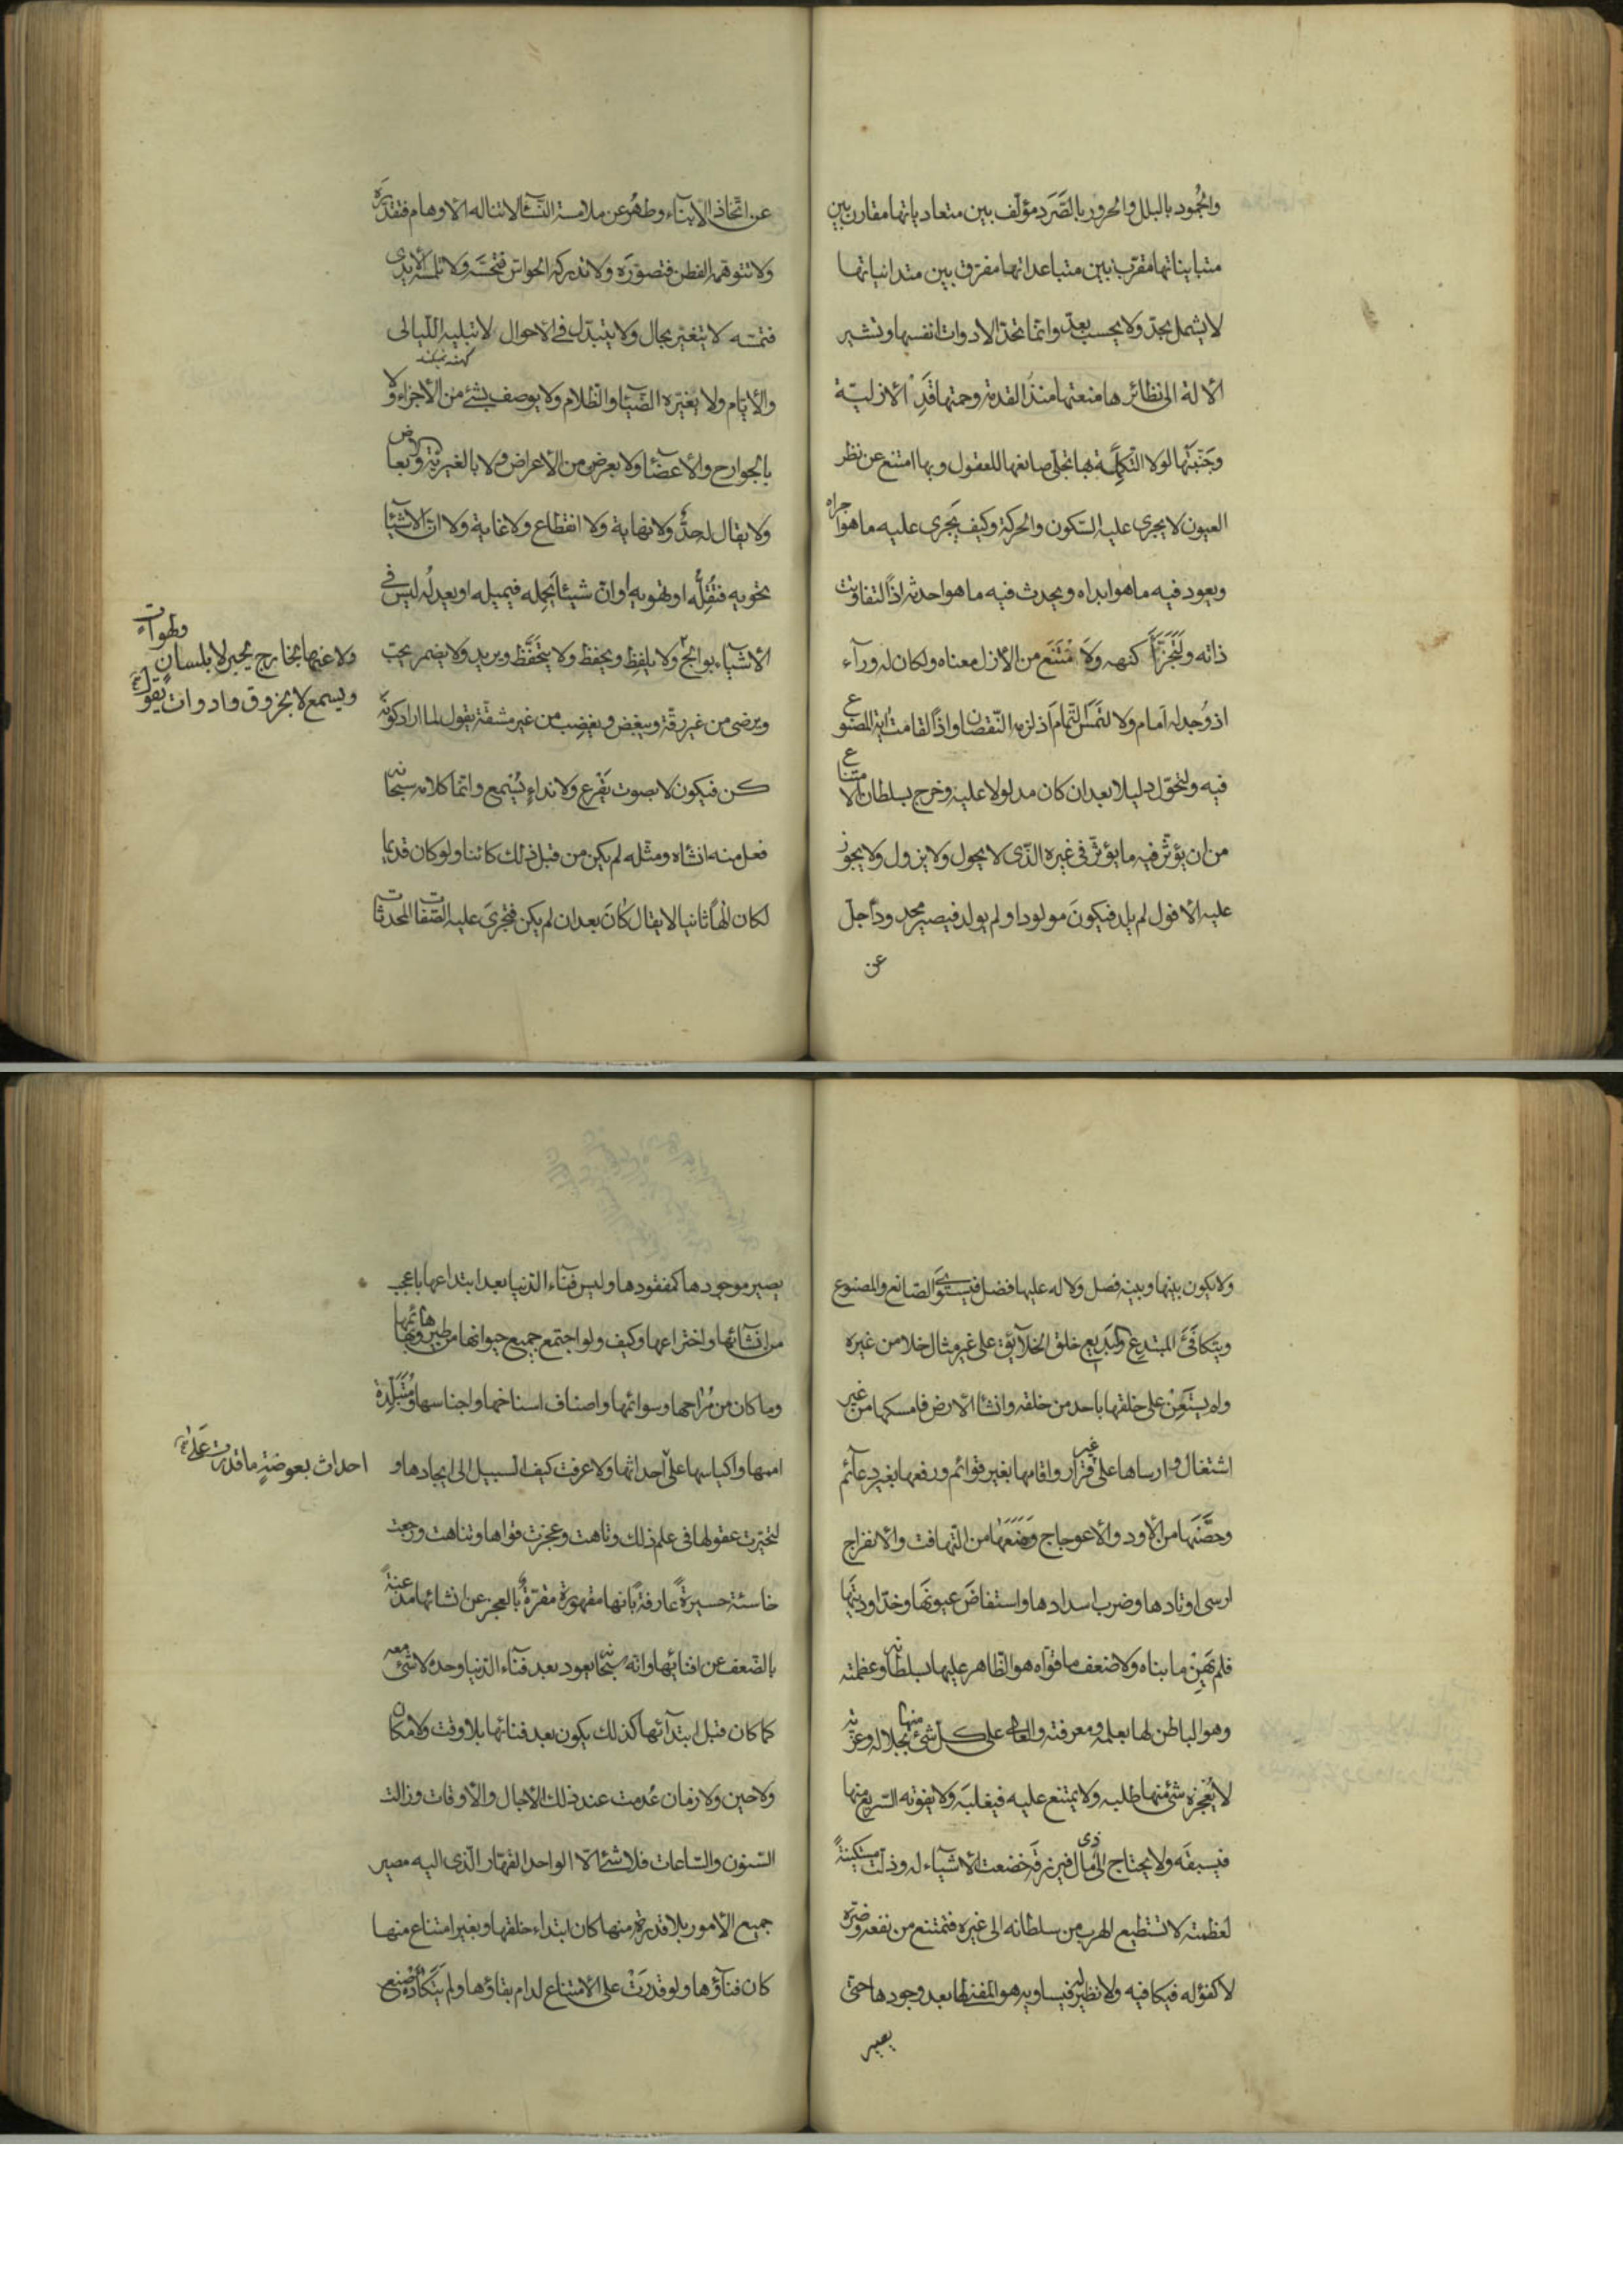 والجمود بالبلل والحرور بالصَّرَد مؤلّف بين متعادياتها مقارن بين
متبايناتها مقرّب بين متباعداتها مفرّق بين متدانياتها
لا يشمل بحدّ ولا يحسب بعدّ وانّما تحدّ الادوات انفسها وتشير
الألة الى نظائرها منعتها منذُ القدمة وحمتها قَدِ الأزليّة
وجَنّبتها لولا التّكملة بها تجلّى صانعها للعقول وبها امتنع عن نظر
العيون لا يجرى عليه السّكون والحركة وكيف يَجرى عليه ما هو اجراه
ويعود فيه ما هو ابداه ويحدث فيه ما هو احدثه اذًا لتفاوتت
ذاته ولَتَجَزَّأَ كنهه ولَامْتَنَع من الأزل معناه ولكان له ورآء
اذ وُجد له امام ولا لتمس التّمام اذ لزمه النّقصان واذًا لقامت اية المصنوع
فيه ولتحوّل دليلا بعد ان كان مدلولا عليه وخرج بسلطان الامتناع
من ان يؤثّر فيه ما يؤثّر فى غيره الذّى لا يحول ولا يزول ولا يجوز
عليه الأفول لم يلد فيكونَ مولودا ولم يولد فيصير محدودًا جلّ
عن
عن اتّخاذ الأبنآء وطهُر عن ملامسة النّسآ لا تناله الأوهام فتقدّرَه
ولا تتوهّمه الفطن فتصوّرَه ولا تدركه الحواسّ فتحسّه ولا تلمسه الأيدى
فتمسّه لا يتغيّر بحال ولا يتبدّل فى الأحوال لا تبليه اللّيالى
والأيّام ولا يغيّره الضّيآ والظّلام ولا يوصف بشئ من الأجزاء ولا
بالجوارح والأعضآ ولا بعرض من الأعراض ولا بالغيريّة والابعاض
ولا يقال له حدٌّ ولا نهاية ولا انقطاع ولا غاية ولا انّ الأشيآ
تحويه فتُقِلُّه او تهويه او انّ شيئا يَحمله فيميله او يعدلُه ليس فى
الأشيآء بوالج ولا عنها بخارج يخبر لا بلسان ولهوات
ويسمع لا بخروق وادوات يقول
ولا يلفِظ ويحفظ ولا يتحَفَّظ ويريد ولا يضمر يحبّ
ويرضى من غير رقّة ويبغض ويغضب من غير مشقّة يقول لما اراد كونه
كن فيكون لا بصوت يَقرع ولا نداءٍ يُسمع وانّما كلامه سبحانه
فعل منه انشاه ومثّله لم يكن من قبل ذلك كائنا ولو كان قديما
لكان الٰهًا ثانيا لا يقال كانَ بعد ان لم يكن فتجرىَ عليه الصّفات المحدثات
ولا يكون بينها وبينه فصل ولا له عليها فضل فيستوىَ الصّانع والمصنوع
ويتكافَئَ المبتدع والبديع خلق الخلآئق على غير مثال خلا من غيره
ولم يستَعِنْ على خلقها باحد من خلقه وانشا الأرض فامسكها من غير
اشتغال وارساها على غير قرار واقامها بغير قوائم ورفعها بغير دعآئم
وحصَّنها من الأود والأعوجاج ومَنَعَها من التّهافت والأنفراج
ارسى اوتادها وضرب اسدادها واستفاضَ عيونها وخدّ اوديتَها
فلم يَهِنْ ما بناه ولا ضعف ما قوّاه هو الظّاهر عليها بسلطانه وعظمته
وهو الباطن لها بعلمه ومعرفته والعالى على كلّ شئ منها بجلاله وعزّته
لا يُعجزه شئ منها طلبه ولا يمتنع عليه فيغلبَه ولا يفوته السّريع منها
فيسبقَه ولا يحتاج الى ذى مال فيرزقَه خضعت الأشيآء له وذلّت مستكينةً
لعظمته لا تستطيع الهرب من سلطانه الى غيره فتمتنع من نفعه وضرّه
لا كفؤ له فيكافيه ولا نظير له فيساويه هو المفنى لها بعد وجودها حتّى
يصير
يصير موجودها كمفقودها وليس فنآء الدّنيا بعد ابتداعها باعجب
من انشآئها واختراعها وكيف ولو اجتمع جميع حيوانها من طيرها وبهائمها
وما كان من مُراحها وسوائمها واصناف اسناخها واجناسها ومُتَبَلِّدة
اممها واكياسها على احداث بعوضةٍ ما قدرت عَلى
احداثها ولا عرفت كيف السبيل الى ايجادها و
لتحيّرت عقولها فى علم ذلك وتاهت وعجزت قواها وتناهت ورجعت
خاسئة حسيرةً عارفةً بانها مقهورة مقرّةً بالعجز عن انشائها مذعنةً
بالضّعف عن افنائها وانّه سبحانه يعود بعد فنآء الدّنيا وحده لا شئ معه
كما كان قبل ابتدآئها كذلك يكون بعد فنائها بلا وقت ولا مكان
ولا حين ولا زمان عُدمت عند ذلك الأجال والأوقات وزالت
السّنون والسّاعات فلا شئ الّا الواحد القهّار الّذى اليه مصير
جميع الأمور بلا قدرة منها كان ابتداء خلقها وبغير امتناع منها
كان فنآؤها ولو قدرَتْ على الأمتناع لدام بقاؤها ولم يَتَكَأَّدْه صُنع